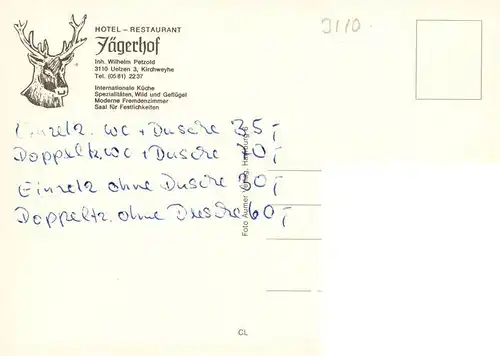 HOTEL – RESTAURANT
Jägerhof
Inh. Wilhelm Petzold
3110 Uelzen 3, Kirchweyhe
Tel. (0581) 2237
Internationale Küche
Spezialitäten, Wild und Geflügel
Moderne Fremdenzimmer
Saal für Festlichkeiten
3110
Einzelz. WC + Dusche 35,-
Doppeltz. WC + Dusche 70,-
Einzelz ohne Dusche 30,-
Doppeltz. ohne Dusche 60,-
Foto Aumer Hamburg 6
CL